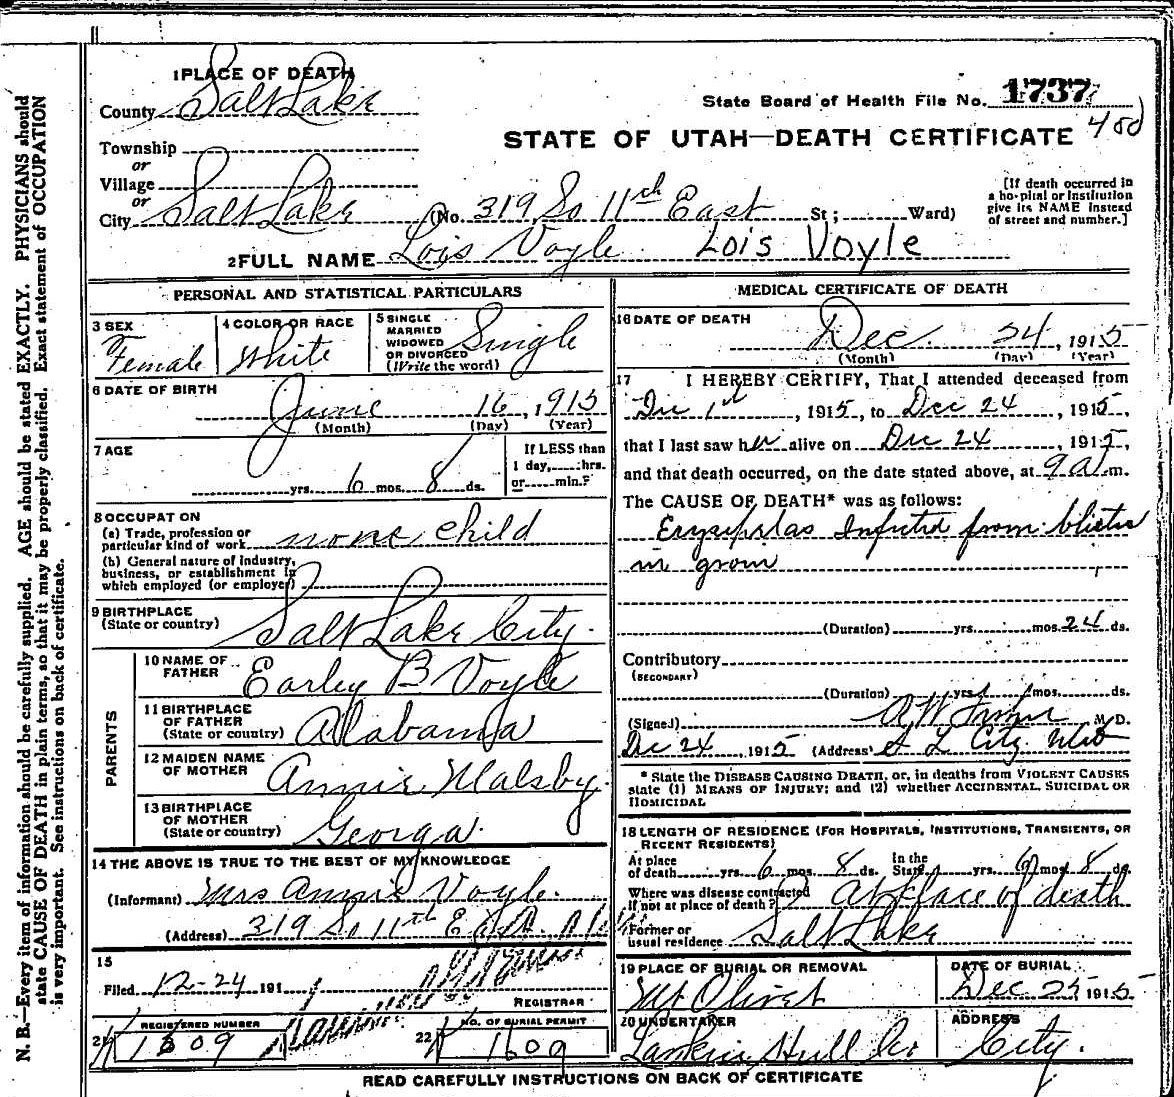 1 PLACE OF DEATH
County Salt Lake
State Board of Health File No. 1737
480
STATE OF UTAH—DEATH CERTIFICATE
Township
or
Village
or
City Salt Lake (No. 319 So 11th East St; Ward)
[If death occurred in a hospital or institution give its NAME instead of street and number.]
2 FULL NAME Lois Voyle Lois Voyle
PERSONAL AND STATISTICAL PARTICULARS
3 SEX Female
4 COLOR OR RACE White
5 SINGLE MARRIED WIDOWED OR DIVORCED (Write the word) Single
6 DATE OF BIRTH
June 16, 1915
(Month) (Day) (Year)
7 AGE
yrs. 6 mos. 8 ds.
If LESS than 1 day, hrs. or min.?
8 OCCUPATION
(a) Trade, profession or particular kind of work none child
(b) General nature of industry, business, or establishment in which employed (or employer)
9 BIRTHPLACE
(State or country) Salt Lake City.
PARENTS
10 NAME OF FATHER Earley B Voyle
11 BIRTHPLACE OF FATHER (State or country) Alabama
12 MAIDEN NAME OF MOTHER Annie Malsby.
13 BIRTHPLACE OF MOTHER (State or country) Georga.
14 THE ABOVE IS TRUE TO THE BEST OF MY KNOWLEDGE
(Informant) Mrs Annie Voyle.
(Address) 319 So 11th East.
15
Filed 12-24 191
REGISTRAR
21 REGISTERED NUMBER 1609
22 NO. OF BURIAL PERMIT 1609
MEDICAL CERTIFICATE OF DEATH
16 DATE OF DEATH
Dec. 24, 1915
(Month) (Day) (Year)
17 I HEREBY CERTIFY, That I attended deceased from
Dec 1st, 1915, to Dec 24, 1915,
that I last saw her alive on Dec 24, 1915,
and that death occurred, on the date stated above, at 9 a.m.
The CAUSE OF DEATH* was as follows:
Erysipelas Infected from blister
in groin
(Duration) yrs. mos. 24 ds.
Contributory
(SECONDARY)
(Duration) yrs. mos. ds.
(Signed) M. D.
Dec 24, 1915 (Address) S L City Utah
* State the DISEASE CAUSING DEATH, or, in deaths from VIOLENT CAUSES
state (1) MEANS OF INJURY; and (2) whether ACCIDENTAL, SUICIDAL OR
HOMICIDAL
18 LENGTH OF RESIDENCE (FOR HOSPITALS, INSTITUTIONS, TRANSIENTS, OR
RECENT RESIDENTS)
At place of death yrs. 6 mos. 8 ds. In the State yrs. 6 mos. 8 ds.
Where was disease contracted if not at place of death? At place of death
Former or usual residence Salt Lake
19 PLACE OF BURIAL OR REMOVAL Mt Olivet
DATE OF BURIAL Dec 25, 1915
20 UNDERTAKER Hull Co
ADDRESS City.
READ CAREFULLY INSTRUCTIONS ON BACK OF CERTIFICATE
N. B.—Every item of information should be carefully supplied. AGE should be stated EXACTLY. PHYSICIANS should
state CAUSE OF DEATH in plain terms, so that it may be properly classified. Exact statement of OCCUPATION
is very important. See instructions on back of certificate.